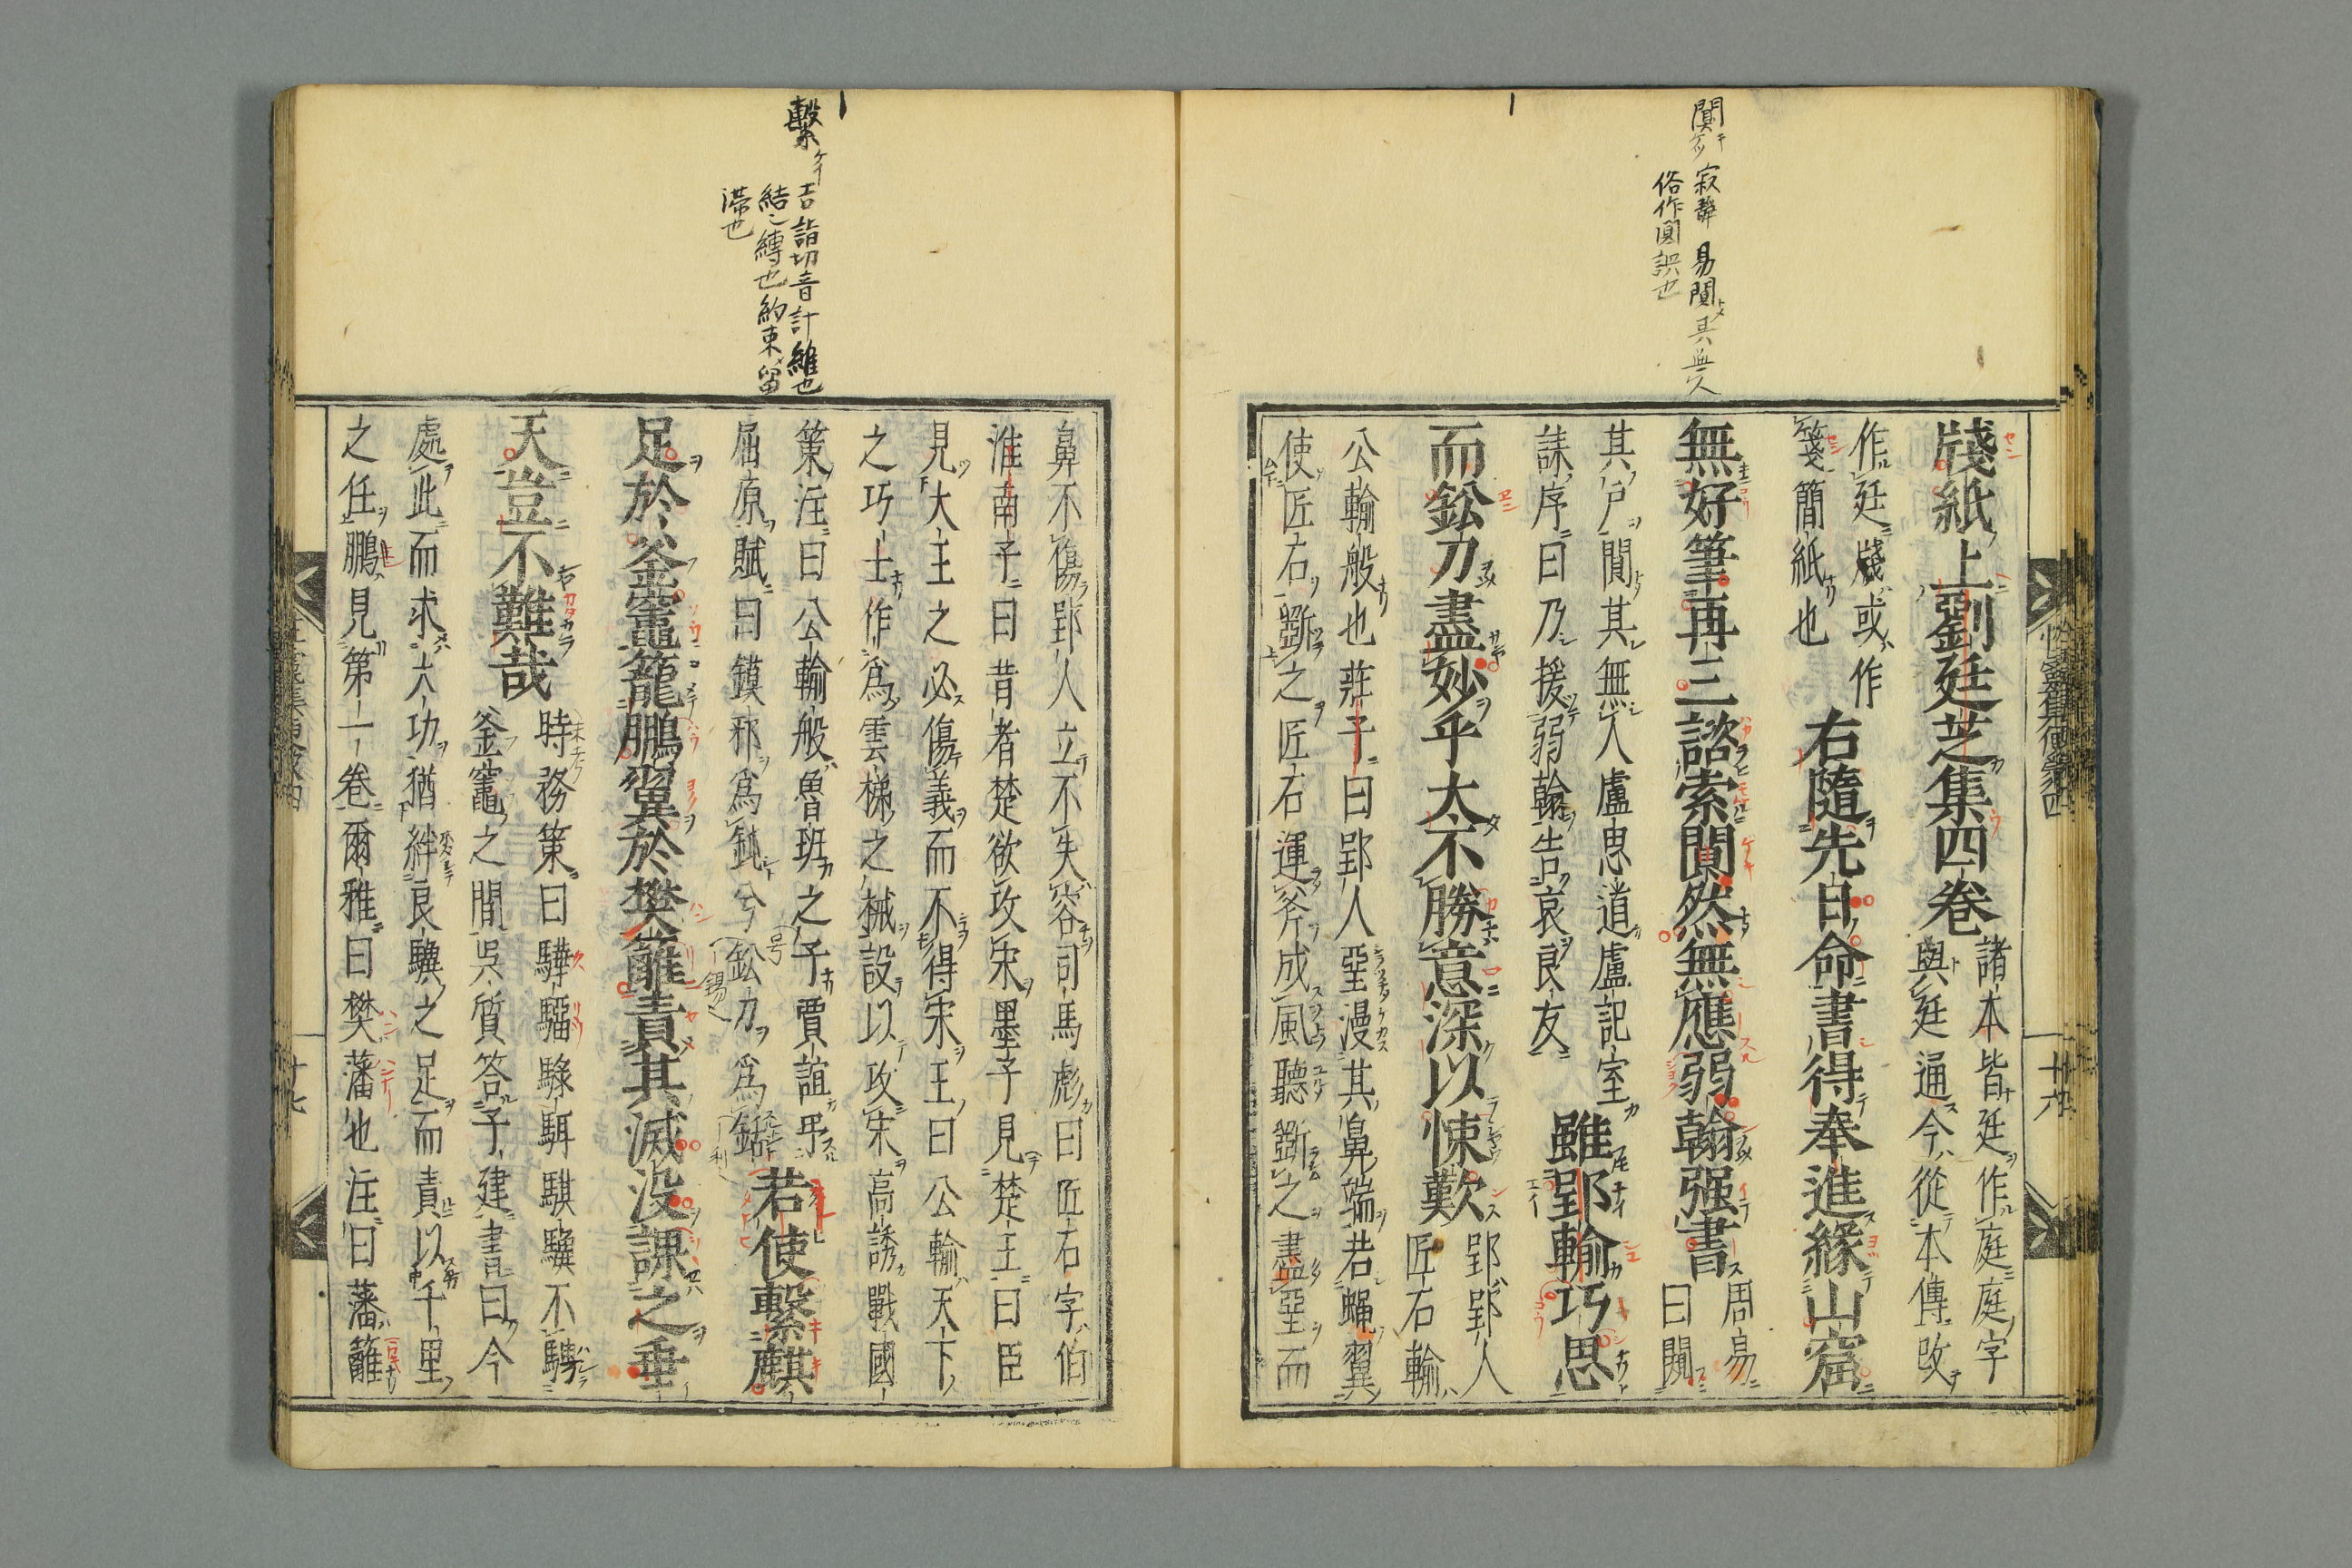 闃 寂靜 易闃其無人
俗作闃誤也
牋紙上劉廷芝集四卷
諸本皆廷作庭庭字
與廷通今從本傳改
作廷牋或作
箋簡紙也
右隨先日命書得奉進緣山窟
無好筆再三諮索闃然無應弱翰强書
周易
曰闃
其戶闃其無人盧思道盧記室
誄序曰乃援弱翰告哀良友
雖郢輸巧思
郢郢人
匠石輸
而鈆刀盡妙乎太不勝意深以悚歎
公輸般也莊子曰郢人堊漫其鼻端若蝿翼
使匠石斵之匠石運斧成風聽斵之盡堊而
十六
繫 吉詣切音計維也
結〻縛也約束留
滯也
鼻不傷郢人立不失容司馬彪曰匠石字伯
淮南子曰昔者楚欲攻宋墨子見楚王曰臣
見大王之必傷義而不得宋王曰公輸天下
之巧士作爲雲梯之械設以攻宋高誘戰國
策注曰公輸般魯班之子賈誼弔
屈原賦曰鏌邪爲鈍兮鈆刀爲銛
若使繫麒
足於釜竈籠鵬翼於樊籬責其滅没課之垂
天豈不難哉
時務策曰驊騮騄駬騏驥不騁
釜竈之間吳質答子建書曰今
處此而求大功猶絆良驥之足而責以千里
之任鵬見第一卷爾雅曰樊藩也注曰藩籬
十七